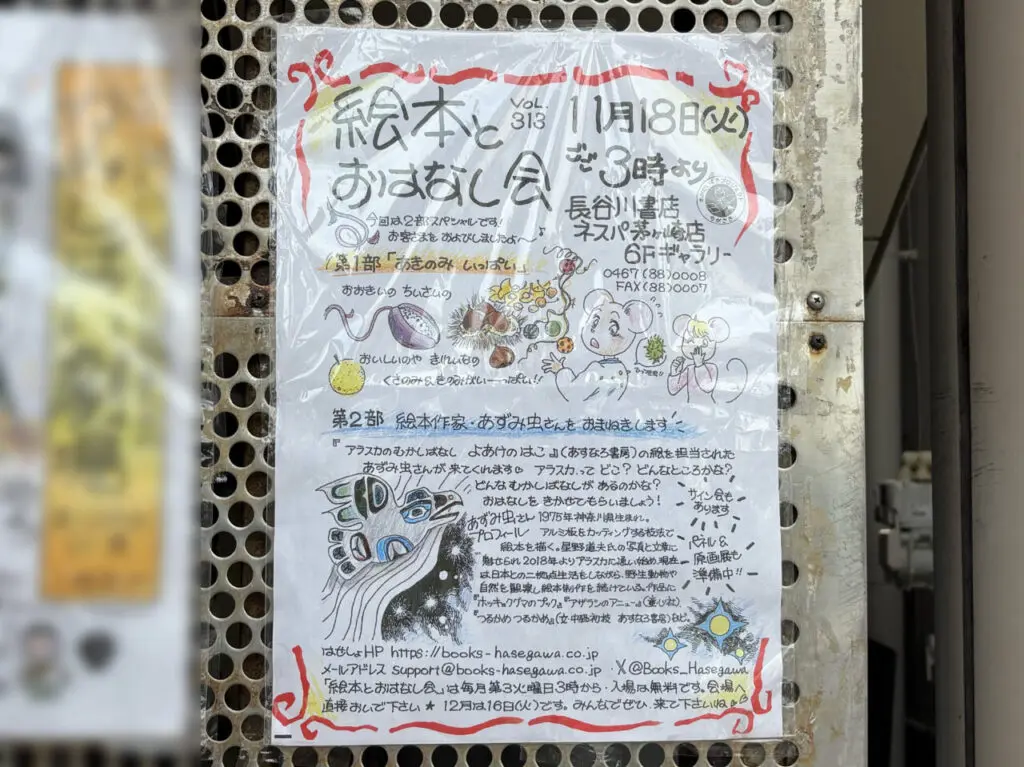 絵本と VOL. 313
おはなし会
11月18日(火)
ごご 3時より
長谷川書店
ネスパ茅ヶ崎店
6Fギャラリー
0467(88)0008
FAX(88)0007
今回は2部スペシャルです!
お客さまをおよびしましたよ〜♪
第1部「あきのみ いっぱい」
おおきいの ちいさいの
おいしいのや きれいなの
くさのみ&きのみがいーっぱい!!
第2部 絵本作家・あずみ虫さんを おまねきします
『アラスカのむかしばなし よあけのはこ』(あすなろ書房)の絵を担当された
あずみ虫さんが来てくれます アラスカって どこ? どんなところかな?
どんな むかしばなしが あるのかな?
おはなしを きかせてもらいましょう!
サイン会も
あります
パネル&
原画展も
準備中!!
あずみ虫さん
プロフィール
1975年神奈川県生まれ。
アルミ板をカッティングする技法で
絵本を描く。星野道夫氏の写真と文章に
魅せられ2018年よりアラスカに通い始め、現在
は日本との二拠点生活をしながら、野生動物や
自然を観察し絵本制作を続けている。作品に
『ホッキョクグマのプック』『アザラシのアニュー』(童心社)
『つるかめ つるかめ』(文・中脇初枝 あすなろ書房)など。
はせしょHP https://books-hasegawa.co.jp
メールアドレス support@books-hasegawa.co.jp ・X@Books_Hasegawa
「絵本とおはなし会」は毎月第3火曜日3時から・入場は無料です。会場へ
直接おいで下さい★ 12月は16日(火)です。みんなでぜひ 来て下さいね